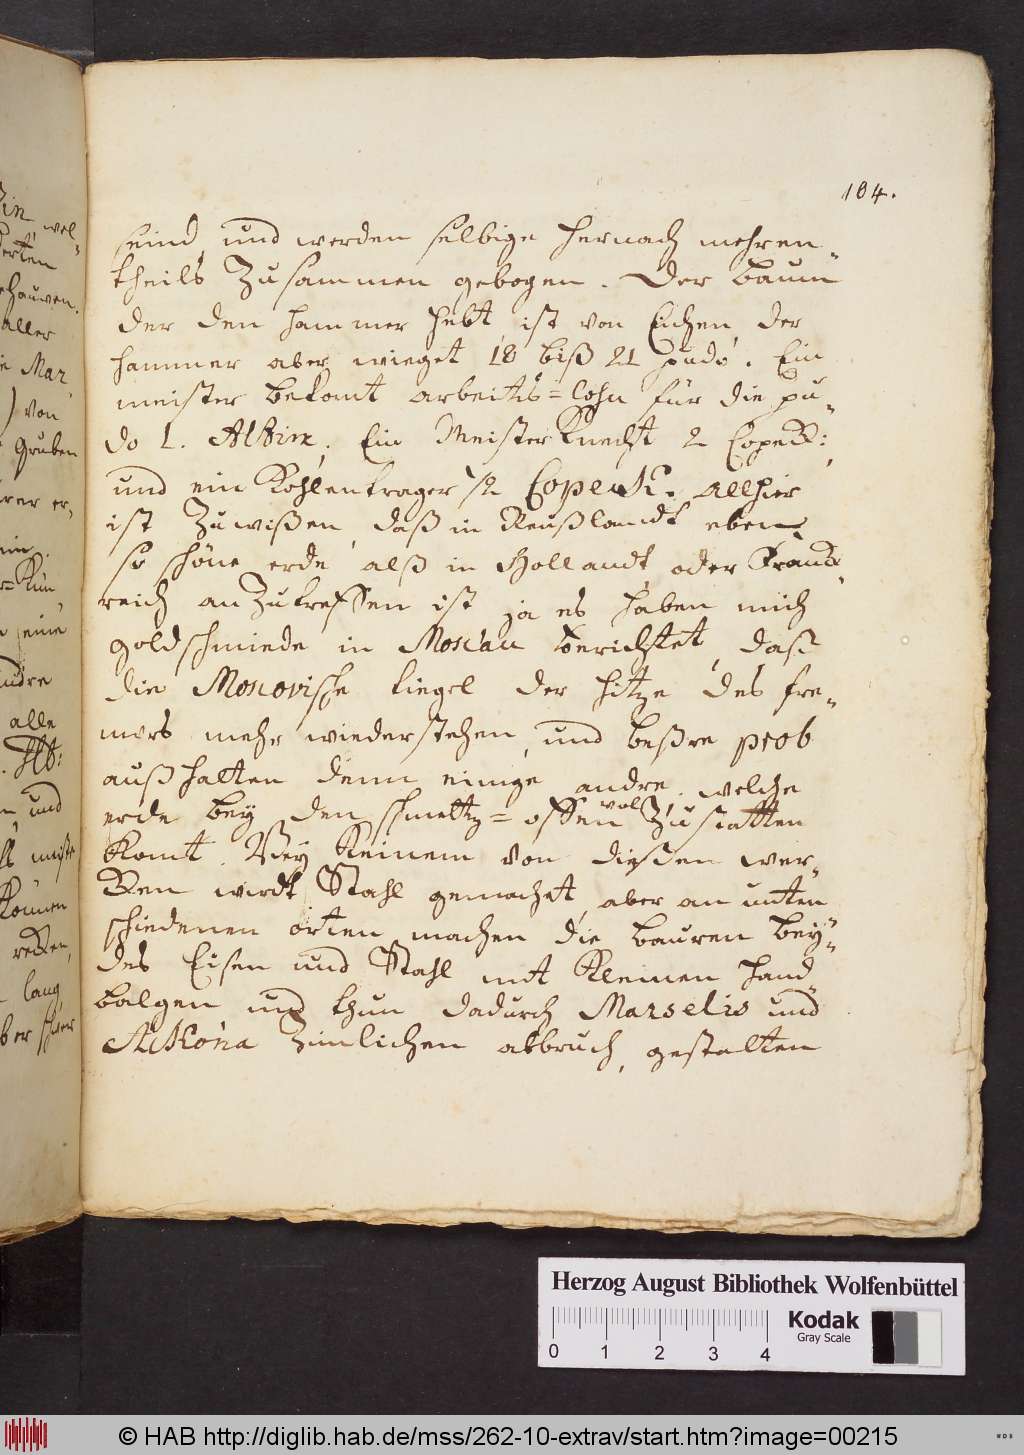 184.
seind, und werden selbige hernach mehren„
theils Zusammen gebogen. Der baum
der den hammer hebt, ist von Eichen der
hammer aber wieget 18 biß 21 puds. Ein
meister bekomt arbeits=lohn für die pu„
do 1. Altin. Ein Meister Knecht 2 Copeck:,
und ein Kohlentrager ½ Copeck. Allhier
ist Zuwißen, daß in Reußlandt eben
so schöne erde alß in Hollandt oder Franck„
reich anZutreffen ist, ja es haben mich
goldschmiede in Moscau berichtet, daß
die Moscovische tiegel der hitze des fre„
mers mehr wiederstehen, und beßre prob
außhalten denn einige andre, welche
erde bey den schmeltz=offen wol Zustatten
Komt. Bey Keinem von dießen wer„
cken wirdt Stahl gemacht, aber an unter
schiedenen orten machen die bauren bey„
des Eisen und Stahl mit Kleinen hand
balgen und thun dadurch Marselis und
Akóna Zimlichen abbruch, gestalten
wel„
aller
Mar
) von
Gruben
eine
alle
und
Können
lang
Herzog August Bibliothek Wolfenbüttel
Kodak
Gray Scale
0 1 2 3 4
© HAB http://diglib.hab.de/mss/262-10-extrav/start.htm?image=00215